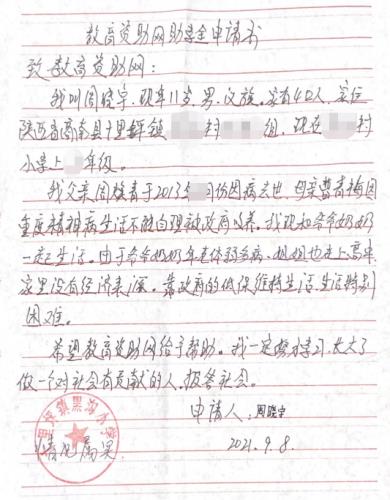 教育资助网助学金申请书
致教育资助网:
我叫周晓宇,现年11岁,男,汉族。家有4口人,家住
陕西省商南县十里坪镇 村 组,现在 村
小学上 年级。
我父亲周 青于2013 月份因病去世,母亲曹青梅因
重度精神病生活不能自理被政府收养。我现和爷爷奶奶
一起生活。由于爷爷奶奶年老体弱多病、姐姐也在上高中
家里没有经济来源,靠政府的低保维持生活,生活特别
困难。
希望教育资助网给予帮助。我一定努力学习,长大了
做一个对社会有贡献的人,报答社会。
申请人:周晓宇
情况属实
2021.9.8.
里坪镇黑沟小学